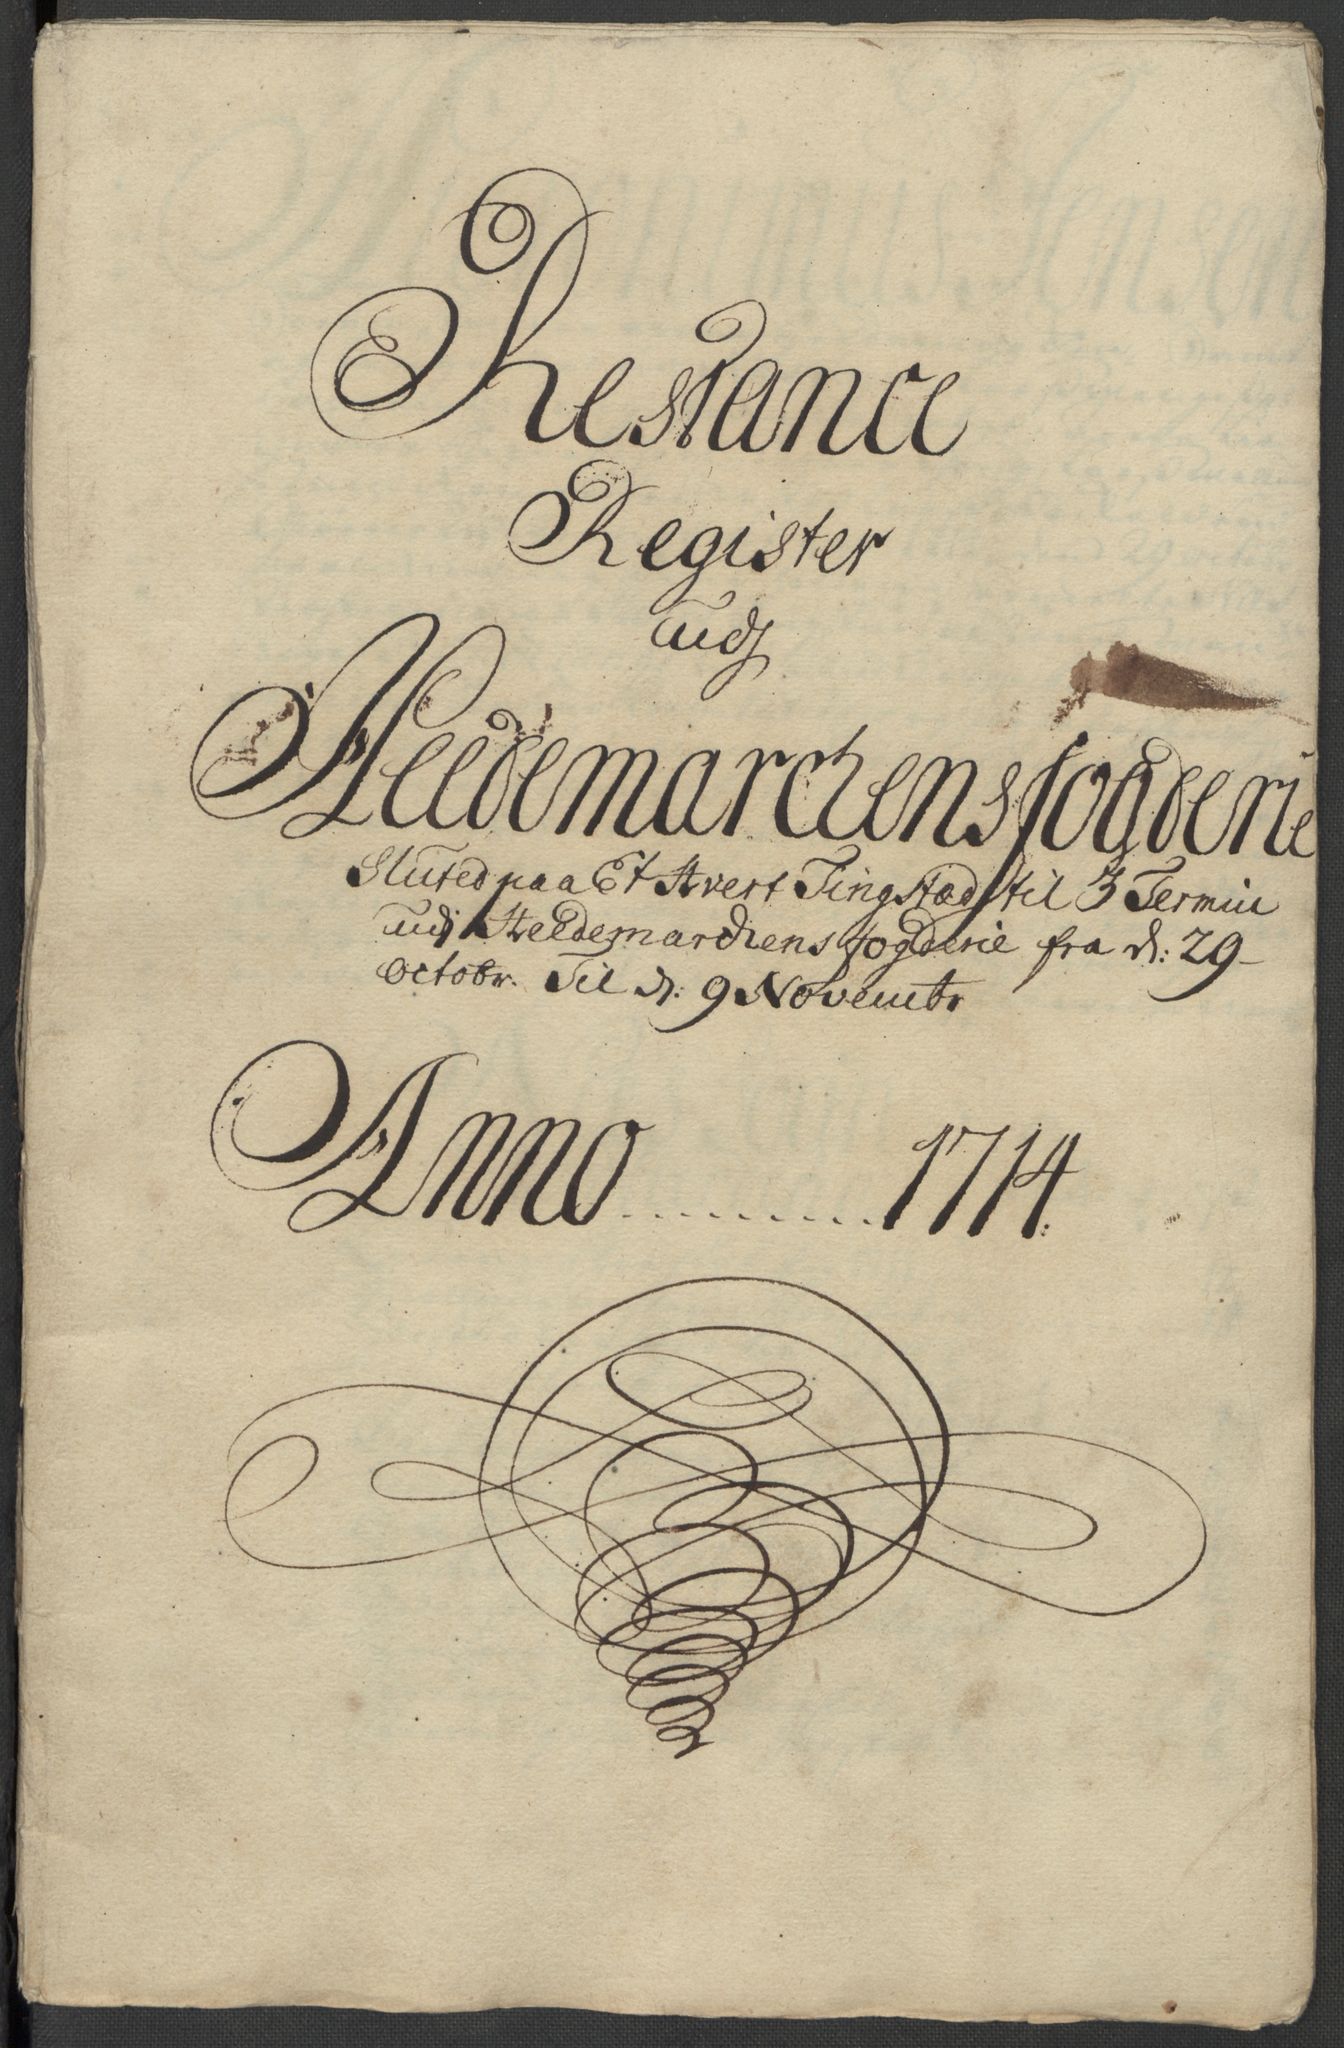 Restance
Register
udj
Heedemarchens fogderie
Sluted paa Et hvert Tingstæd til 3 Termin
udj Heedemarchens fogderie fra d: 29
octobr. Til d: 9 Novembr
Anno ......... 1714: